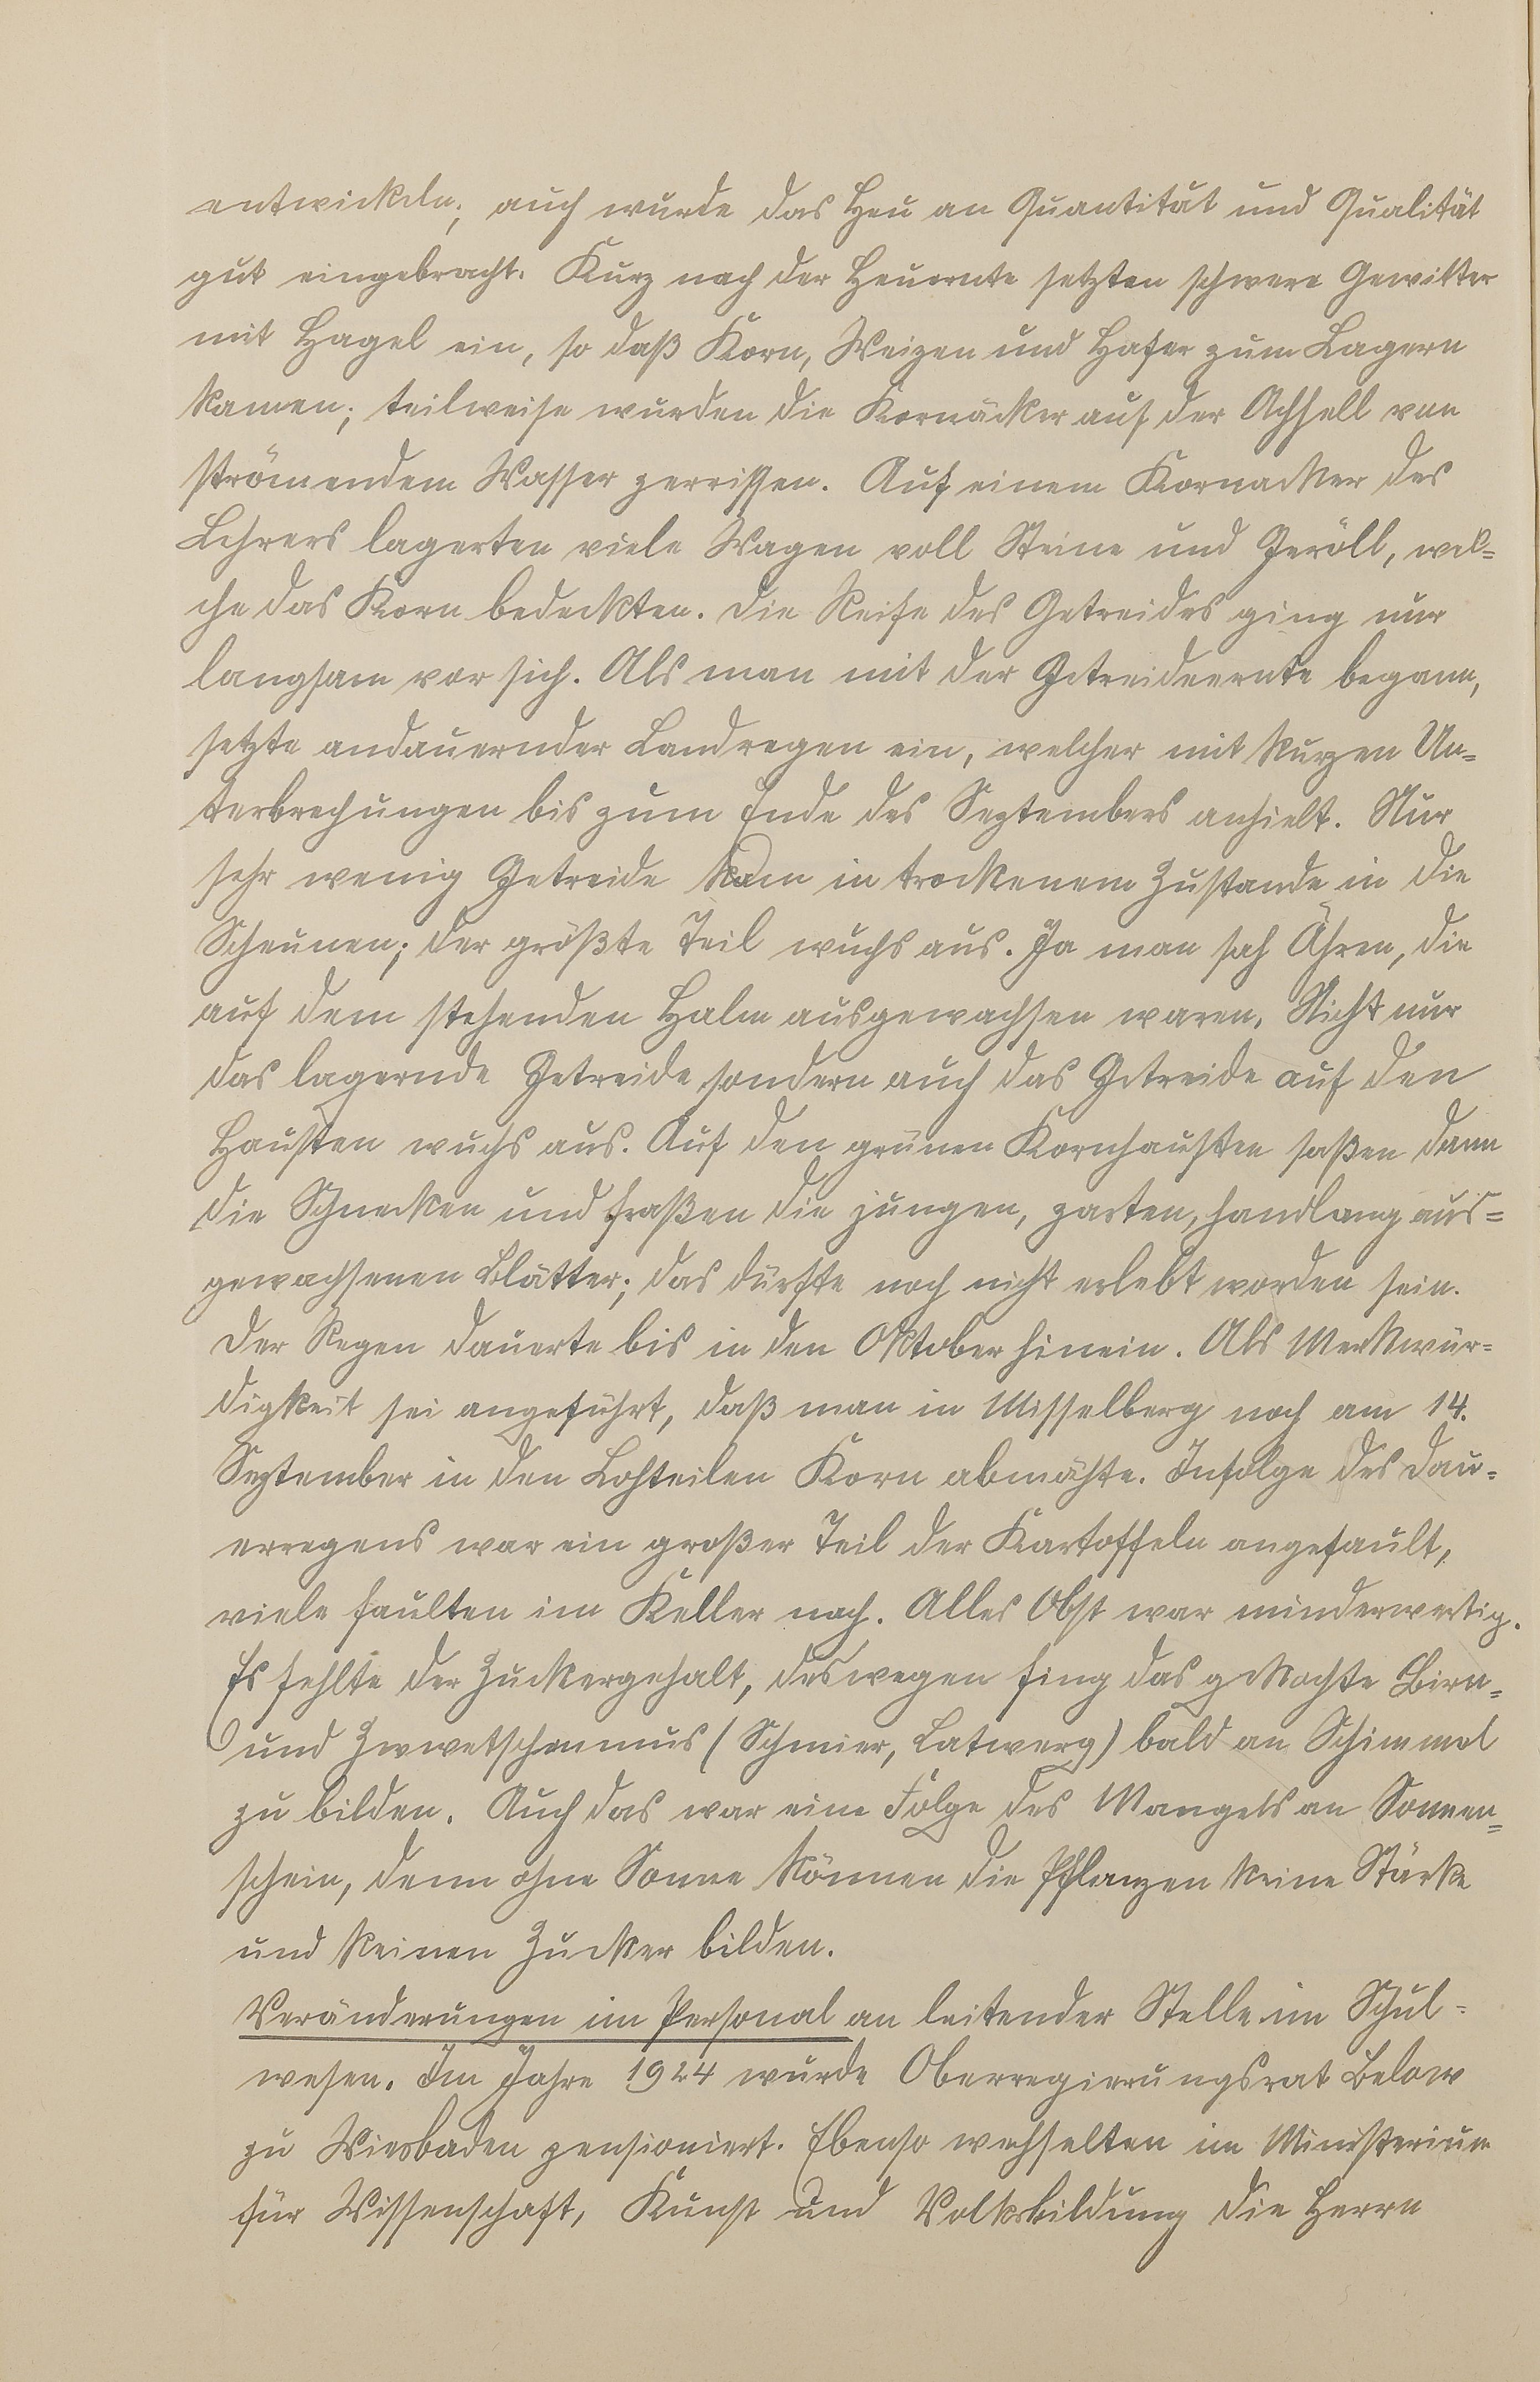 entwickeln; auch wurde das Heu an Quantität und Qualität
gut eingebracht. Kurz nach der Heuernte setzten schwere Gewitter
mit Hagel ein, so daß Korn, Weizen und Hafer zum Lagern
kamen; teilweise wurden die Kornäcker auf der Achsell von
strömendem Wasser zerrissen. Auf einem Kornacker des
Lehrers lagerten viele Wagen voll Steine und Geröll, wel-
che das Korn bedeckten. Die Reife des Getreides ging nur
langsam vor sich. Als man mit der Getreideernte begann,
setzte andauernder Landregen ein, welcher mit kurzen Un-
terbrechungen bis zum Ende des Septembers anhielt. Nur
sehr wenig Getreide kam in trockenem Zustande in die
Scheunen; der größte Teil wuchs aus. Ja man sah Ähren, die
auf dem stehenden Halm ausgewachsen waren. Nicht nur
das lagernde Getreide sondern auch das Getreide auf den
Hausten wuchs aus. Auf den grünen Kornhausten saßen dann
die Schnecken und fraßen die jungen, zarten, handlang aus-
gewachsenen Blätter; das dürfte noch nicht erlebt worden sein.
Der Regen dauerte bis in den Oktober hinein. Als Merkwür-
digkeit sei angeführt, daß man in Misselberg noch am 14.
September in den Lohteilen Korn abmähte. Infolge des Dau-
erregens war ein großer Teil der Kartoffeln angefault,
viele faulten im Keller nach. Alles Obst war minderwertig.
Es fehlte der Zuckergehalt, deswegen fing das gekochte Birn-
und Zwetschenmus (Schmier, Latwerg) bald an Schimmel
zu bilden. Auch das war eine Folge des Mangels an Sonnen-
schein, denn ohne Sonne können die Pflanzen keine Stärke
und keinen Zucker bilden.
Veränderungen im Personal an leitender Stelle im Schul-
wesen. Im Jahre 1924 wurde Oberregierungsrat Below
zu Wiesbaden pensioniert. Ebenso wechselten im Ministerium
für Wissenschaft, Kunst und Volksbildung die Herrn